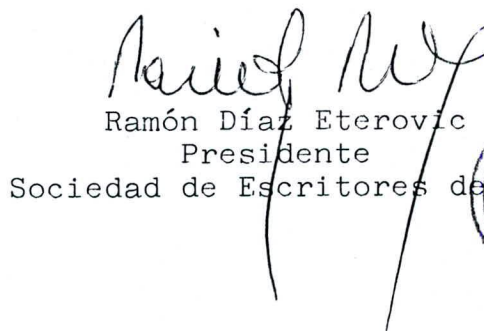 Ramón Díaz Eterovic
Presidente
Sociedad de Escritores de